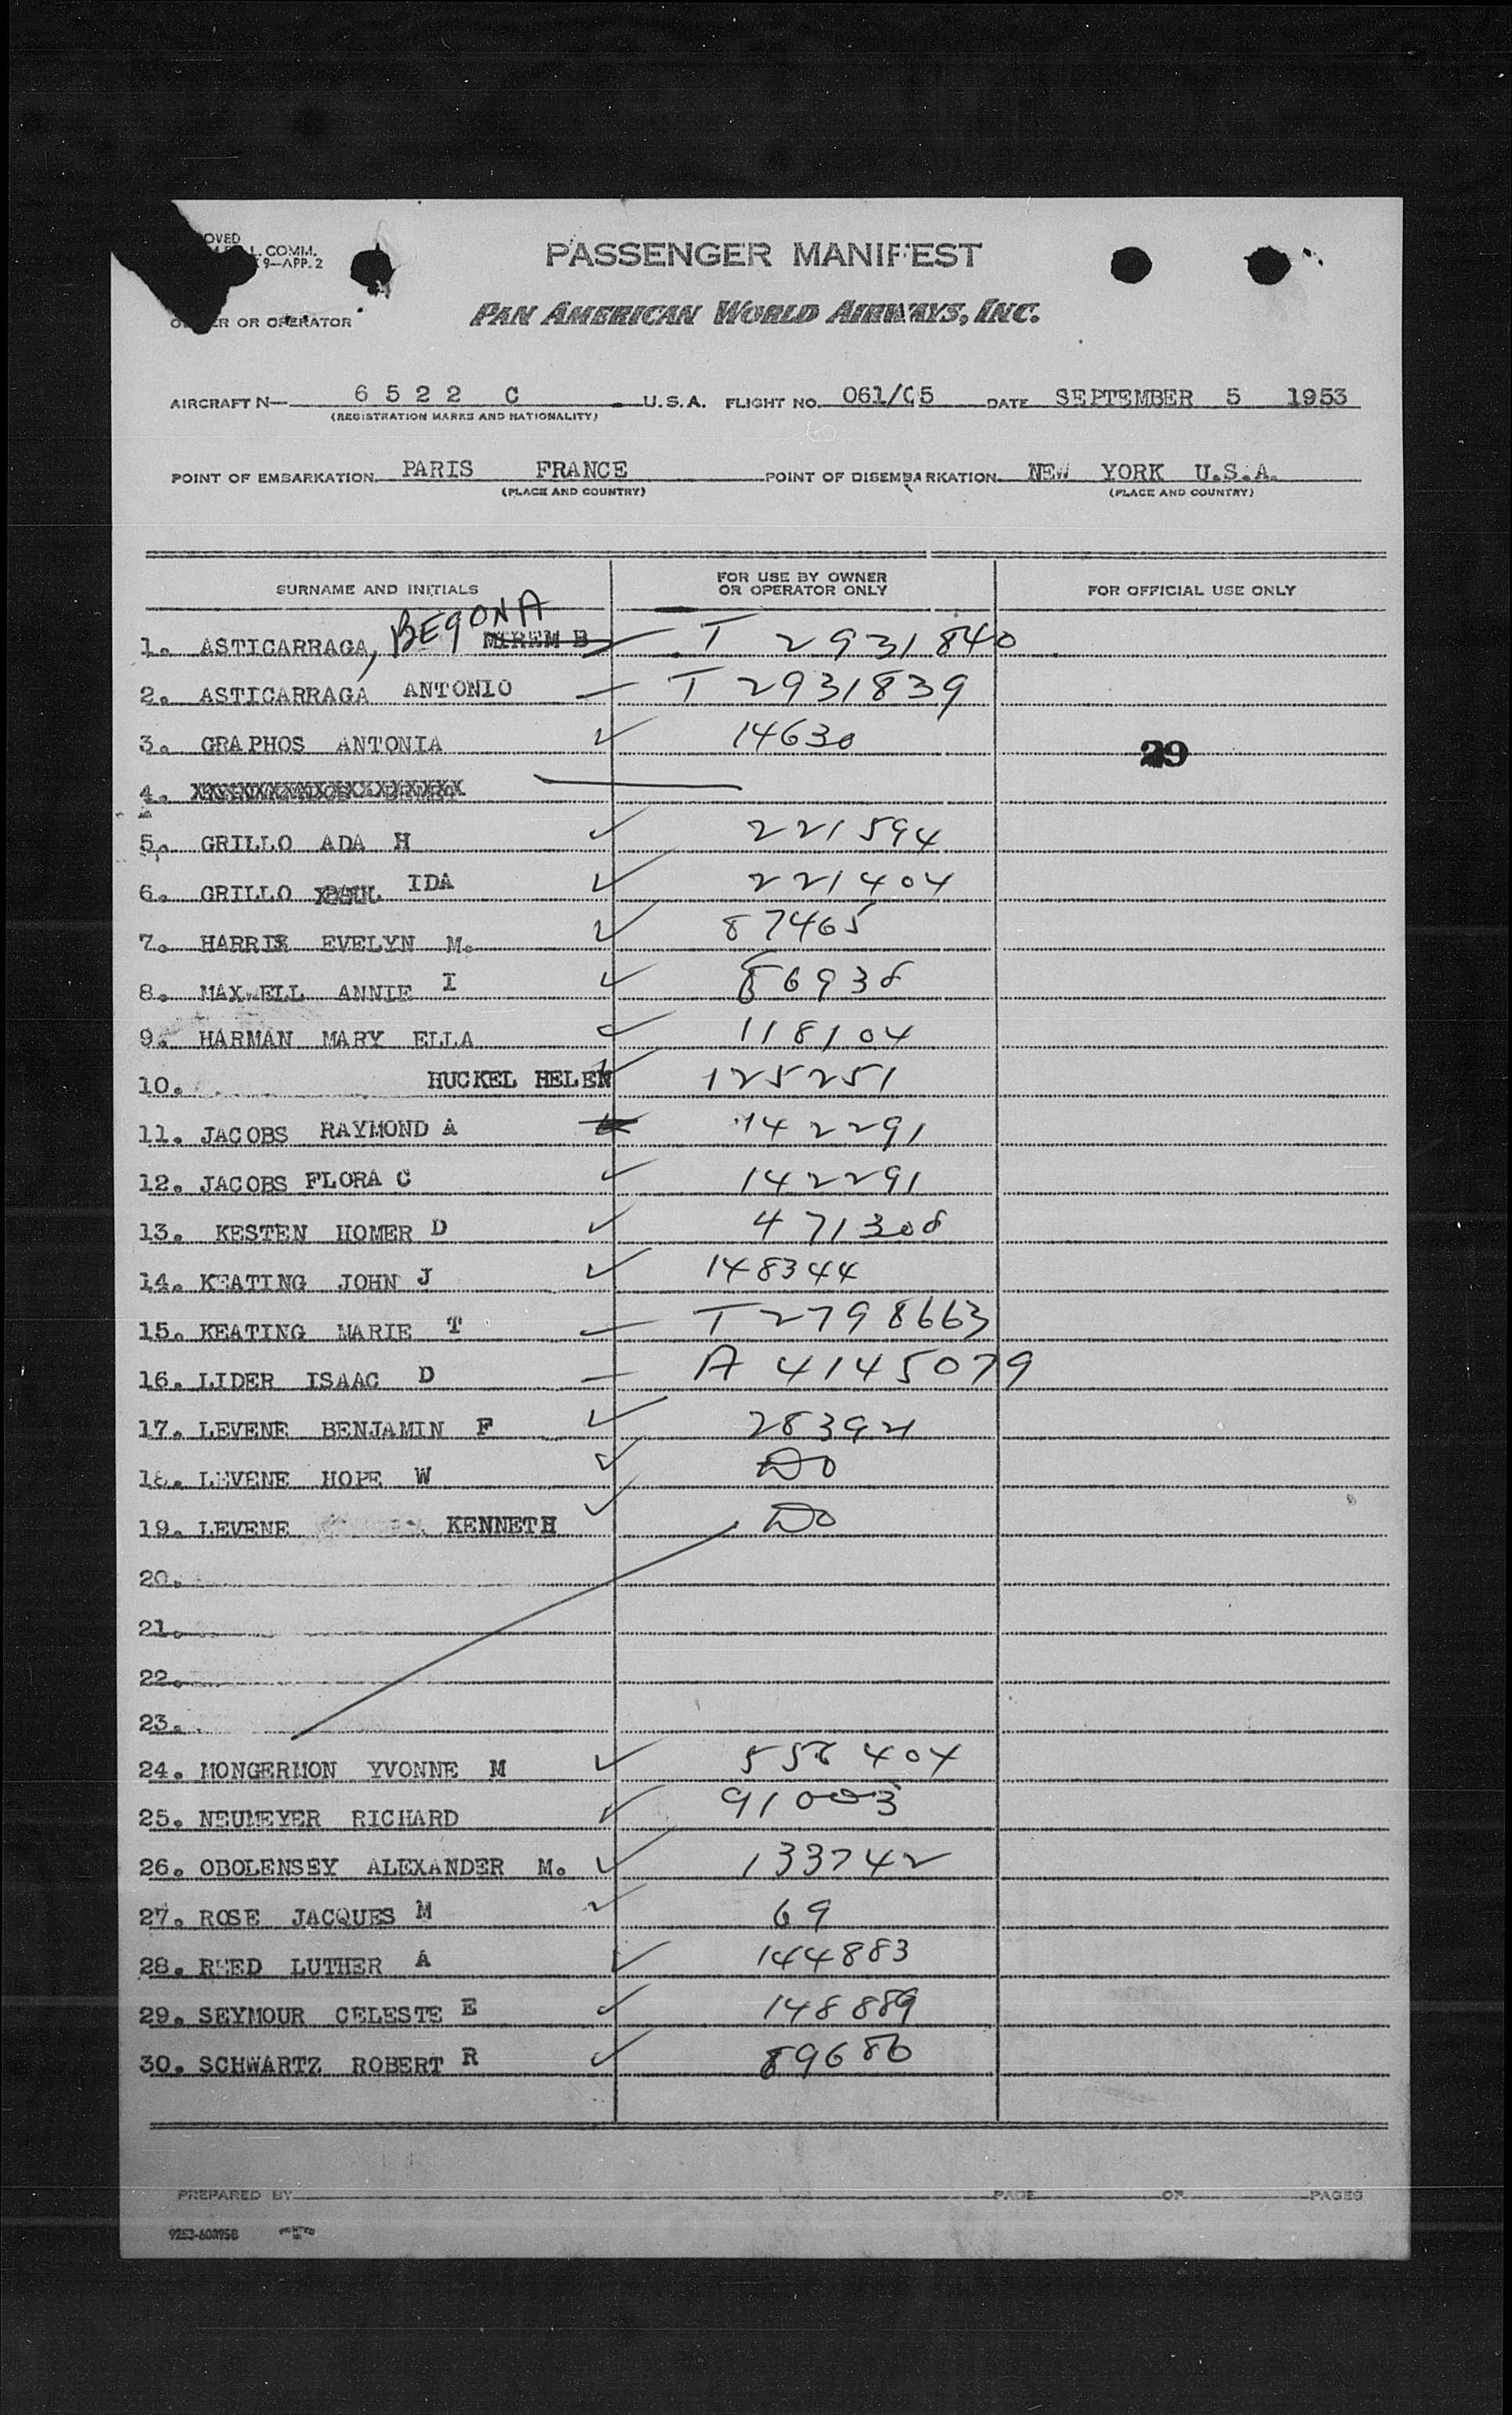 OVED
L. COMM.
9—APP. 2
PASSENGER MANIFEST
OWNER OR OPERATOR
PAN AMERICAN WORLD AIRWAYS, INC.
AIRCRAFT N— 6522 C U.S.A. FLIGHT NO. 061/05 DATE SEPTEMBER 5 1953
(REGISTRATION MARKS AND NATIONALITY)
POINT OF EMBARKATION PARIS FRANCE POINT OF DISEMBARKATION NEW YORK U.S.A.
(PLACE AND COUNTRY) (PLACE AND COUNTRY)
SURNAME AND INITIALS FOR USE BY OWNER OR OPERATOR ONLY FOR OFFICIAL USE ONLY
1. ASTICARRAGA, BEGONA MIREM B T 2931840
2. ASTICARRAGA ANTONIO T 2931839
3. GRAPHOS ANTONIA 14630 29
4.
5. GRILLO ADA H 221594
6. GRILLO IDA 221404
7. HARRIS EVELYN M. 87465
8. MAXWELL ANNIE I 86938
9. HARMAN MARY ELLA 118104
10. HUCKEL HELEN 125251
11. JACOBS RAYMOND A 142291
12. JACOBS FLORA C 142291
13. KESTEN HOMER D 471308
14. KEATING JOHN J 148344
15. KEATING MARIE T T 2798663
16. LIDER ISAAC D A 4145079
17. LEVENE BENJAMIN F 28394
18. LEVENE HOPE W Do
19. LEVENE KENNETH Do
20.
21.
22.
23.
24. MONGERMON YVONNE M 556404
25. NEUMEYER RICHARD 91003
26. OBOLENSEY ALEXANDER M. 133742
27. ROSE JACQUES M 69
28. REED LUTHER A 144883
29. SEYMOUR CELESTE E 148889
30. SCHWARTZ ROBERT R 89686
PREPARED BY PAGE OF PAGES
PRINTED